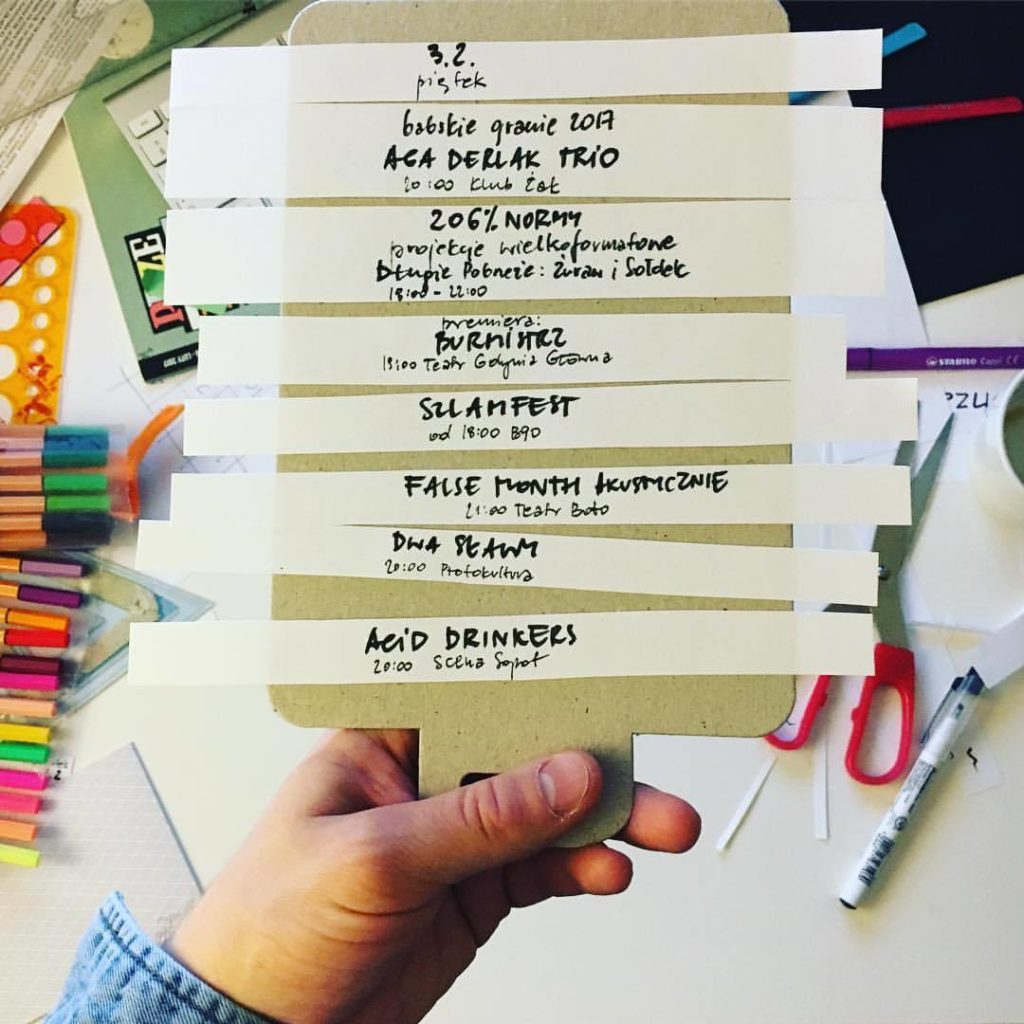 3.2.
piątek
babskie granie 2017
AGA DERLAK TRIO
20:00 Klub Żak
206% NORMY
projekcje wielkoformatowe
Długie Pobrzeże: Żuraw i Sołdek
18:00 - 22:00
premiera:
BURMISTRZ
19:00 Teatr Gdynia Główna
SZLAMFEST
od 18:00 B90
FALSE MONTH AKUSTYCZNIE
21:00 Teatr Boto
DWA SŁAWY
20:00 Protokultura
ACID DRINKERS
20:00 Scena Sopot
STABILO